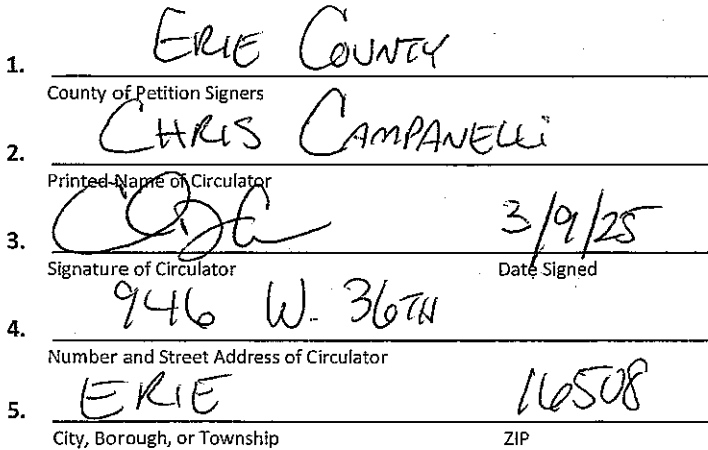 1. ERIE COUNTY
County of Petition Signers
2. CHRIS CAMPANELLI
Printed Name of Circulator
3. 3/9/25
Signature of Circulator Date Signed
4. 946 W. 36TH
Number and Street Address of Circulator
5. ERIE 16508
City, Borough, or Township ZIP